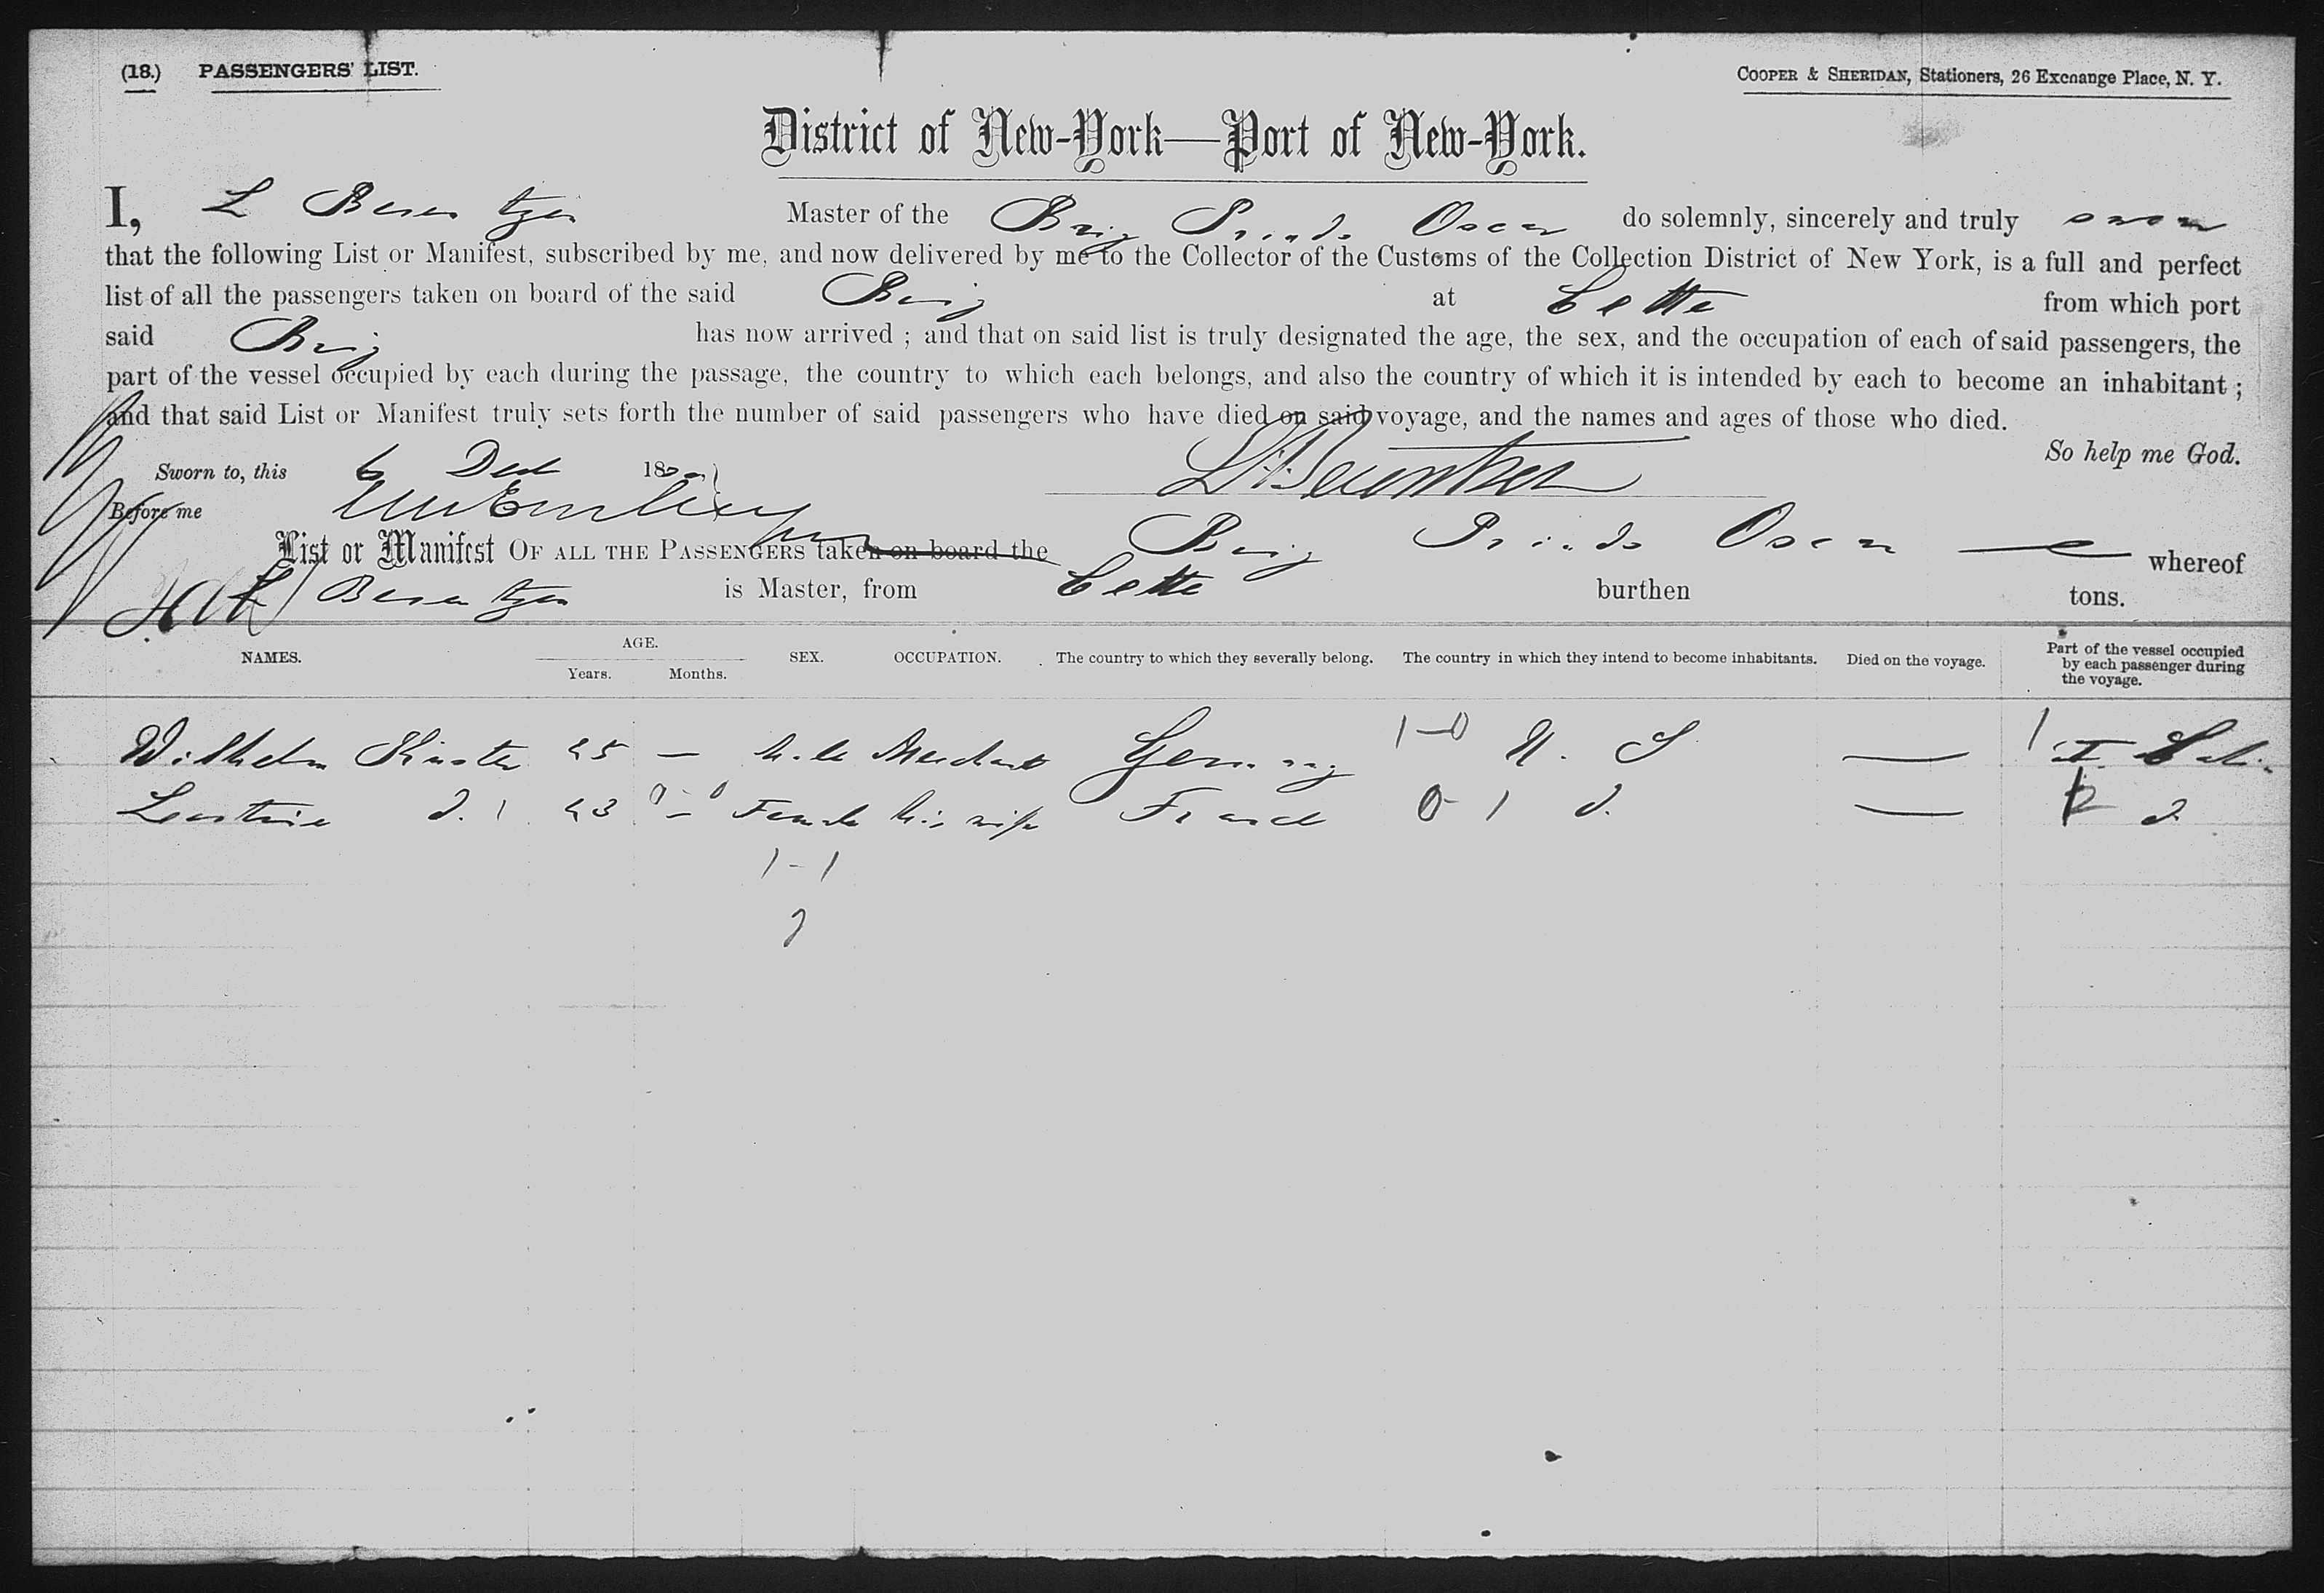 (18.) PASSENGERS' LIST.
COOPER & SHERIDAN, Stationers, 26 Exchange Place, N. Y.
District of New-York—Port of New-York.
I, L Berentzen Master of the Brig Prinds Oscar do solemnly, sincerely and truly swear
that the following List or Manifest, subscribed by me, and now delivered by me to the Collector of the Customs of the Collection District of New York, is a full and perfect
list of all the passengers taken on board of the said Brig at Cette from which port
said Brig has now arrived ; and that on said list is truly designated the age, the sex, and the occupation of each of said passengers, the
part of the vessel occupied by each during the passage, the country to which each belongs, and also the country of which it is intended by each to become an inhabitant ;
and that said List or Manifest truly sets forth the number of said passengers who have died on said voyage, and the names and ages of those who died.
So help me God.
Sworn to, this 6 Dec 18
Before me
List or Manifest OF ALL THE PASSENGERS taken on board the Brig Prinds Oscar whereof
L Berentzen is Master, from Cette burthen tons.
NAMES. AGE. Years. Months. SEX. OCCUPATION. The country to which they severally belong. The country in which they intend to become inhabitants. Died on the voyage. Part of the vessel occupied by each passenger during the voyage.
Wilhelm 25 — Male Merchant Germany 1-0 U. S — 1
d. 1 23 0-0 — Female his wife France 0-1 d. — d
1-1
2